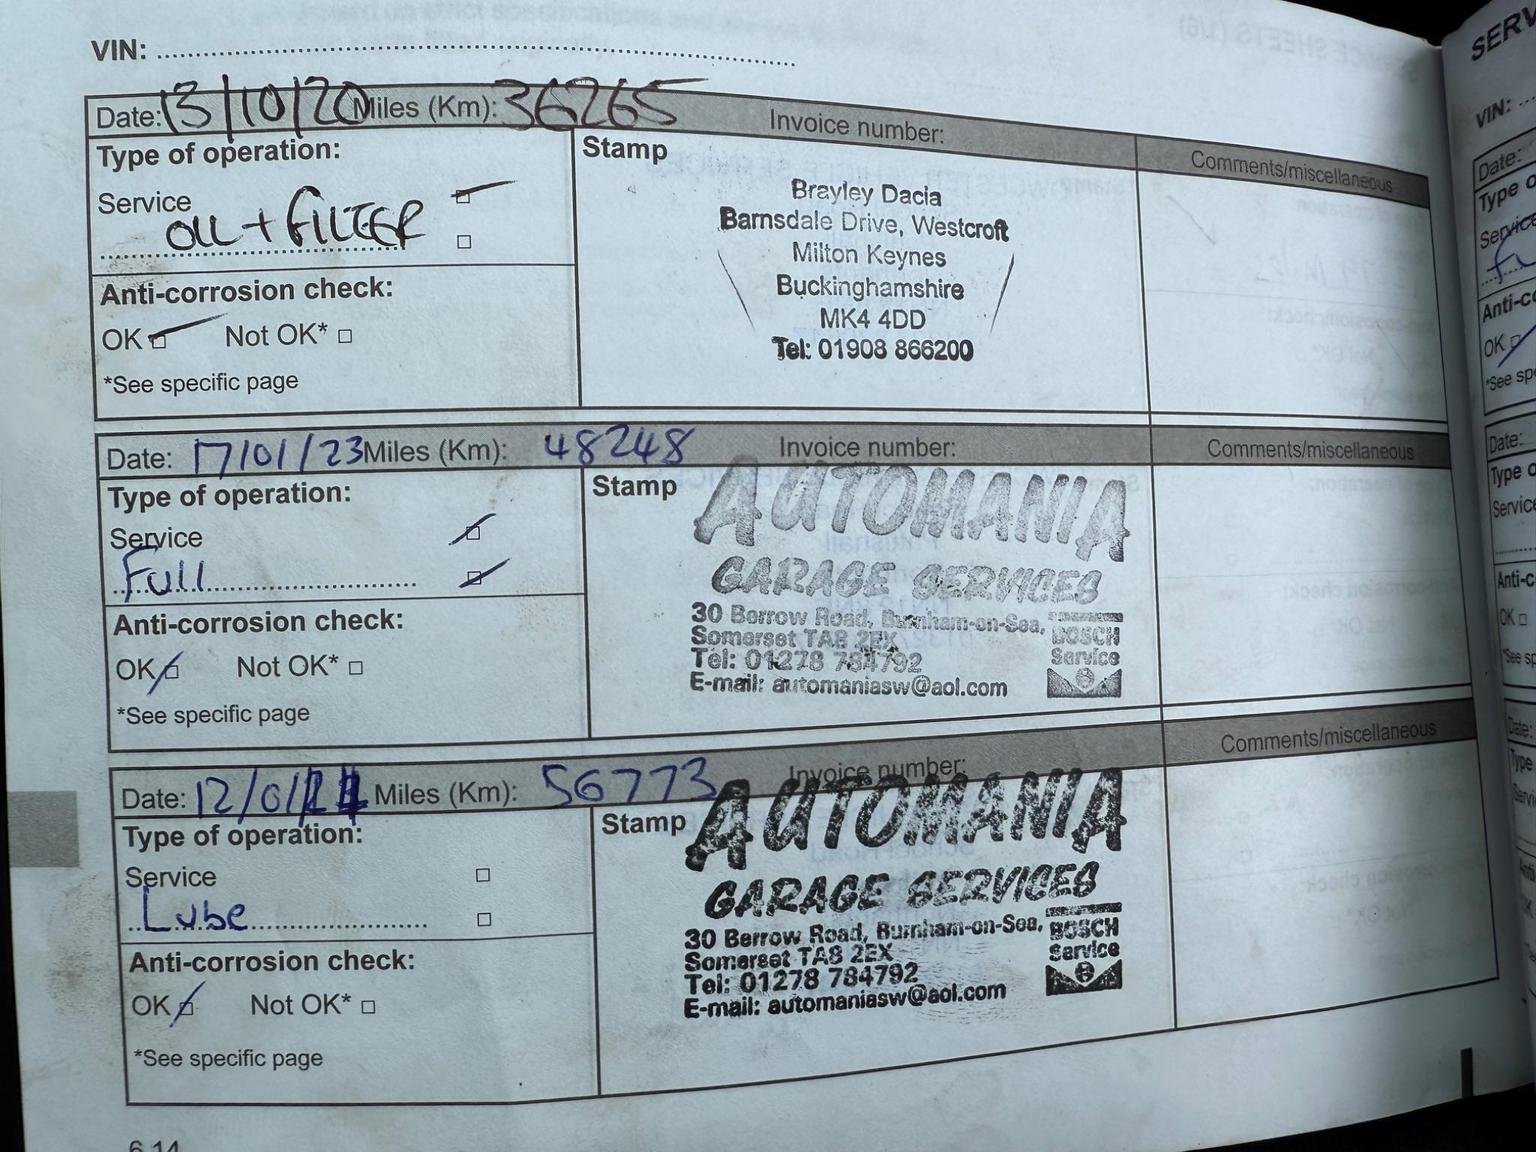 VIN:
Date: 13/10/20 Miles (Km): 36265 Invoice number: Comments/miscellaneous
Type of operation:
Service
OIL + FILTER
Anti-corrosion check:
OK Not OK*
*See specific page
Stamp
Brayley Dacia
Barnsdale Drive, Westcroft
Milton Keynes
Buckinghamshire
MK4 4DD
Tel: 01908 866200
Date: 17/01/23 Miles (Km): 48248 Invoice number: Comments/miscellaneous
Type of operation:
Service
Full
Anti-corrosion check:
OK Not OK*
*See specific page
Stamp
AUTOMANIA
GARAGE SERVICES
30 Berrow Road, Burnham-on-Sea,
Somerset TA8 2EX
Tel: 01278 784792
E-mail: automaniasw@aol.com
BOSCH
Service
Date: 12/01/24 Miles (Km): 56773 Invoice number: Comments/miscellaneous
Type of operation:
Service
Lube
Anti-corrosion check:
OK Not OK*
*See specific page
Stamp
AUTOMANIA
GARAGE SERVICES
30 Berrow Road, Burnham-on-Sea,
Somerset TA8 2EX
Tel: 01278 784792
E-mail: automaniasw@aol.com
BOSCH
Service
6.14
VIN:
Date:
OK
Date:
Service
OK